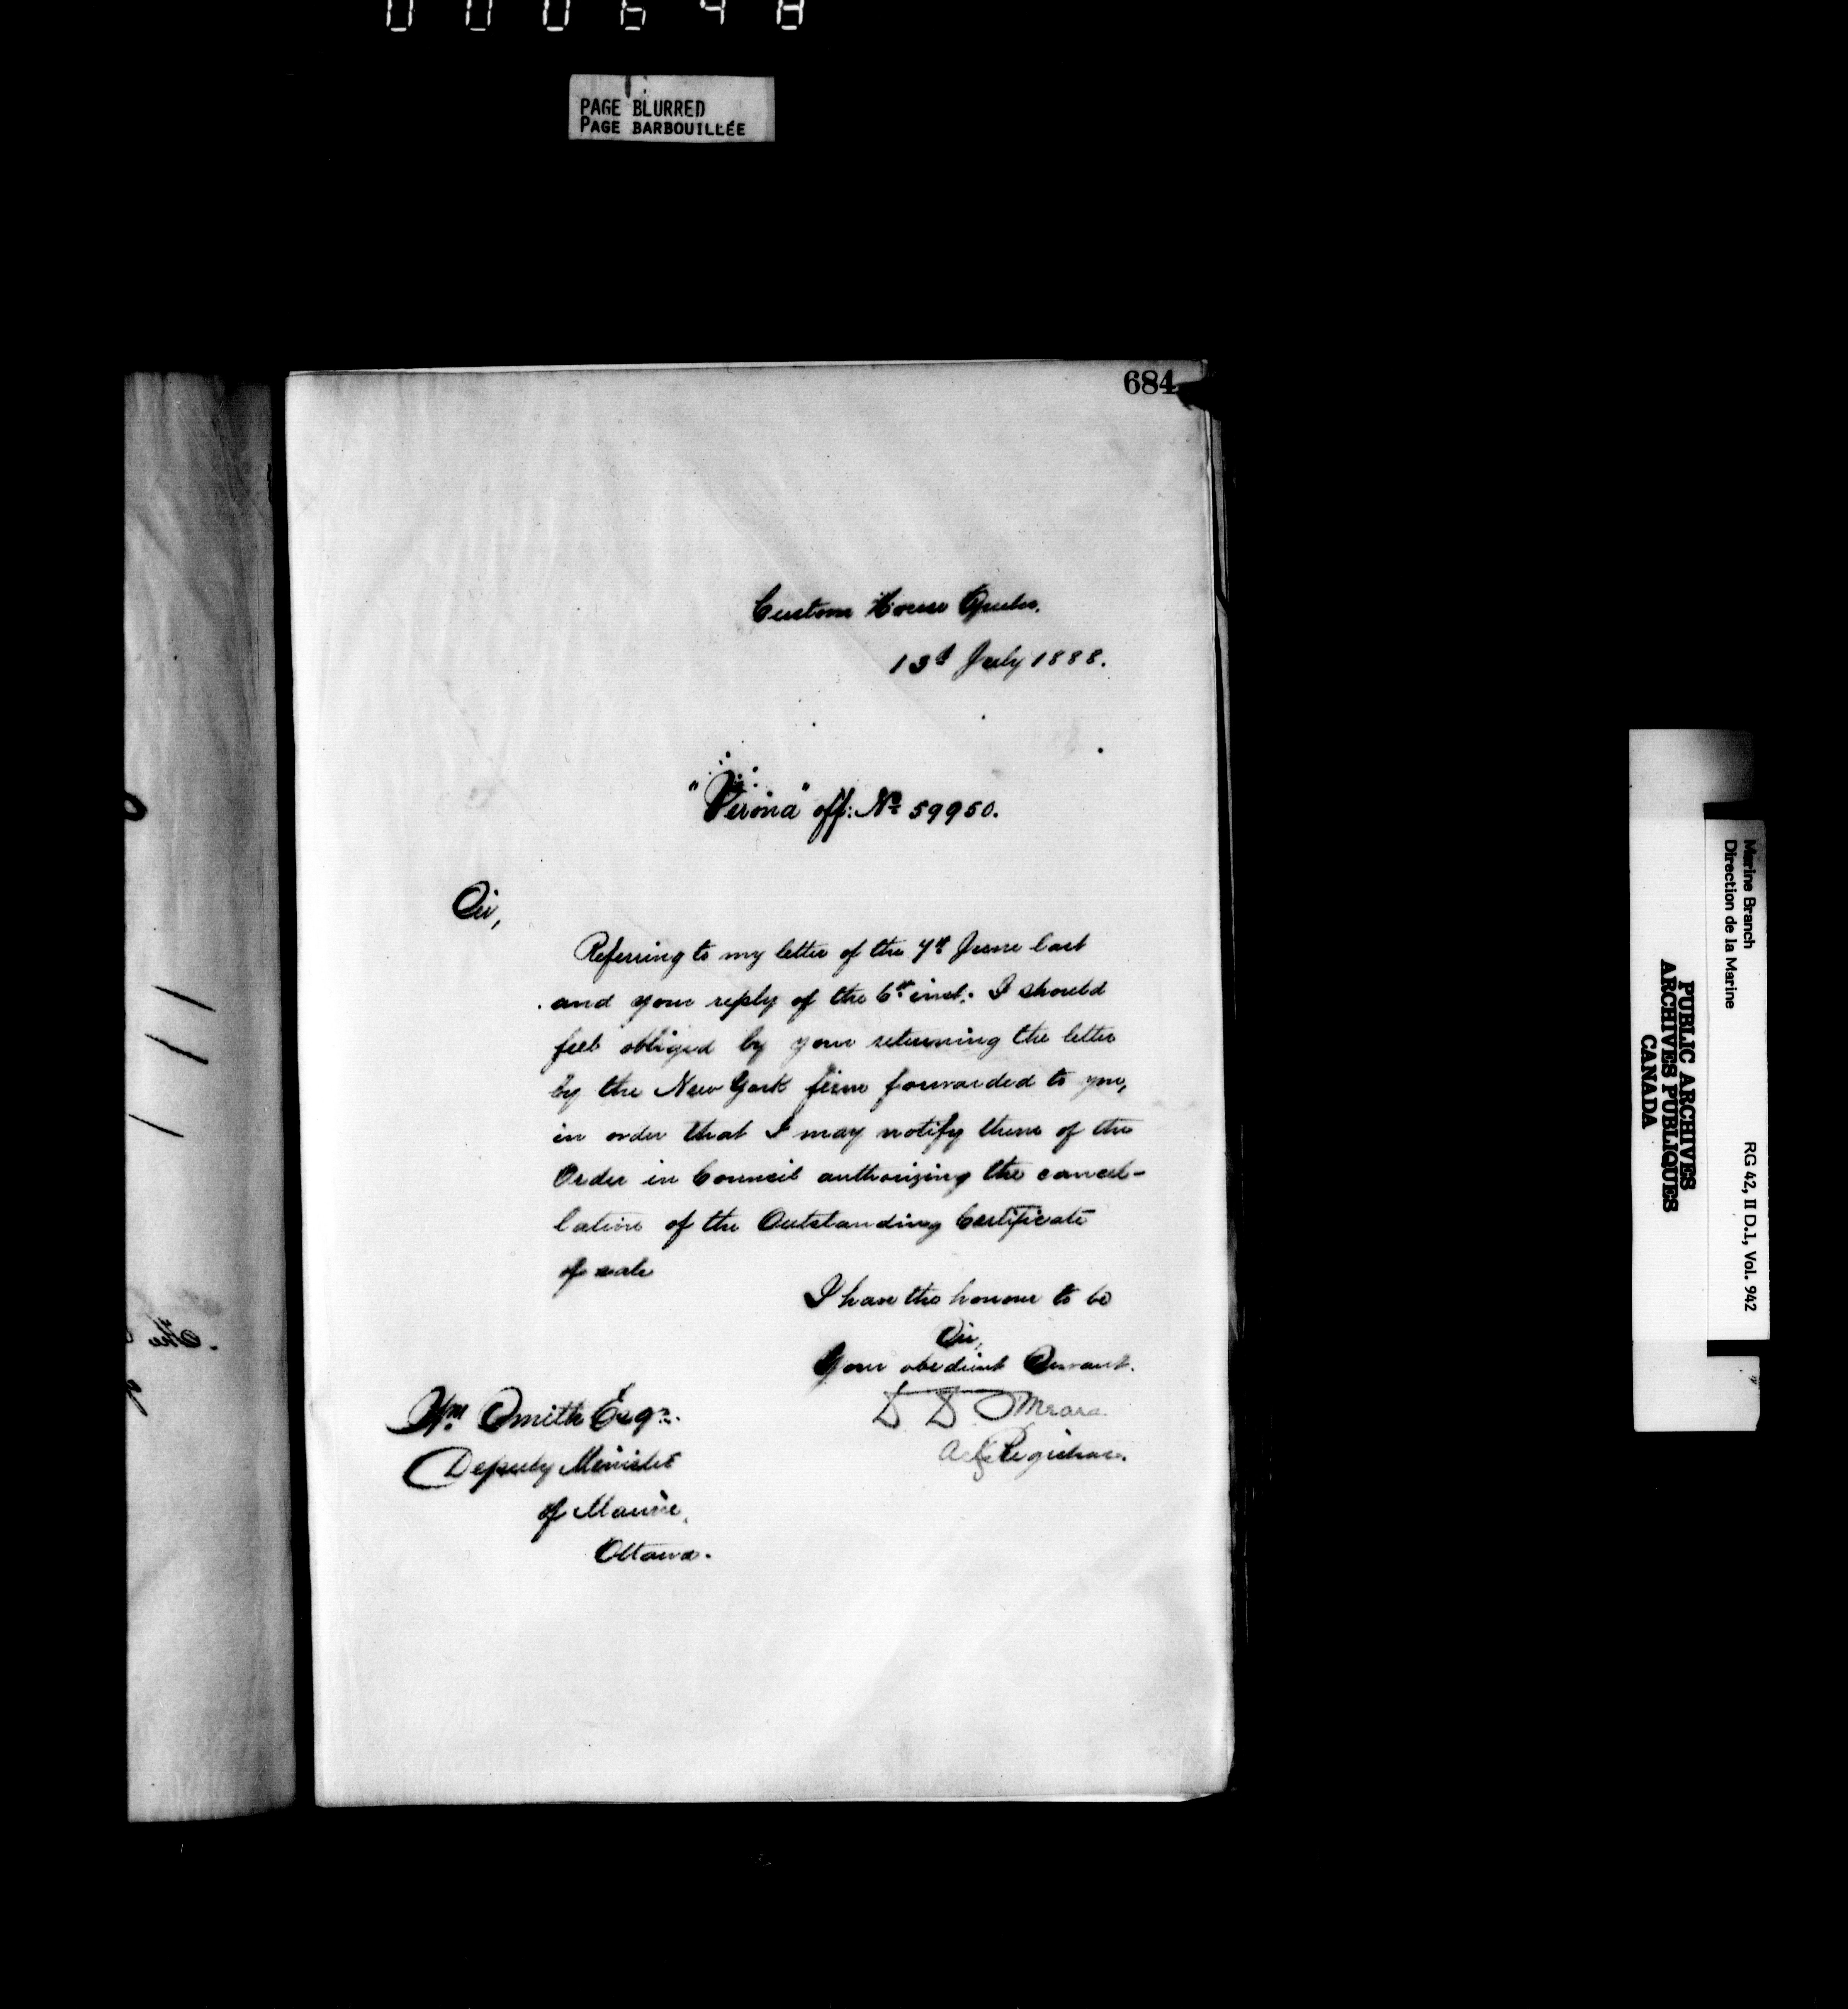 000648
PAGE BLURRED
PAGE BARBOUILLÉE
684
Custom House Quebec.
13th July 1888.
"Verona" off: No 59950.
Sir,
Referring to my letter of the 7th June last
and your reply of the 6th inst: I should
feel obliged by your returning the letter
by the New York firm forwarded to you,
in order that I may notify them of the
Order in Council authorizing the cancel-
lation of the Outstanding Certificate
of sale
I have the honour to be
Sir,
Your obedient Servant.
D D O'Meara
Actg Registrar.
Wm Smith Esqr.
Deputy Minister
of Marine,
Ottawa.
Marine Branch
Direction de la Marine
RG 42, II D.1, Vol. 942
PUBLIC ARCHIVES
ARCHIVES PUBLIQUES
CANADA